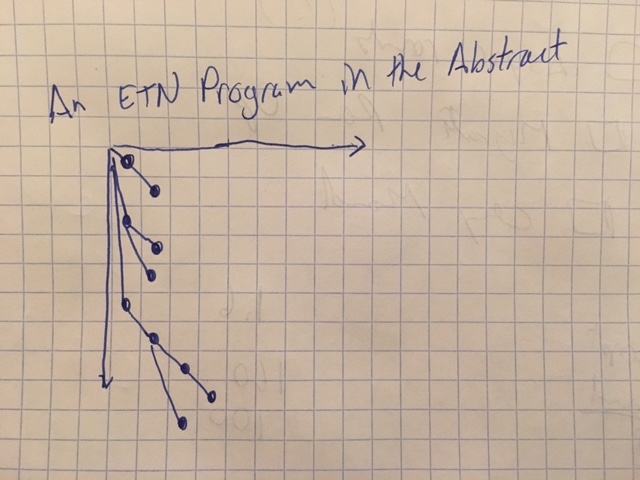 An ETN Program in the Abstract